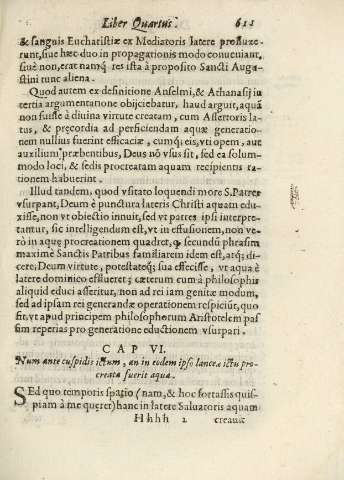 Liber Quartus. 611
& sanguis Eucharistiæ ex Mediatoris latere profluxe-
runt, siue hæc duo in propagationis modo conueniant,
siue non, erat namq; res ista à proposito Sancti Augu-
stini tunc aliena.
Quod autem ex definitione Anselmi, & Athanasij in
tertia argumentatione obijciebatur, haud arguit, aquã
non fuisse à diuina virtute creatam, cum Assertoris la-
tus, & pręcordia ad perficiendam aquæ generatio-
nem nullius fuerint efficaciæ, cumq; eis, vti opem, aut
auxiliũ præbentibus, Deus nõ vsus sit, sed ea solum-
modo loci, & sedis procreatam aquam recipientis ra-
tionem habuerint.
Illud tandem, quod vsitato loquendi more S. Patres
vsurpant, Deum è punctura lateris Christi aquam edu-
xisse, non vt obiectio innuit, sed vt patres ipsi interpre-
tantur, sic intelligendum est, vt in effusionem, non ve-
rò in aquę procreationem quadret, ꝙ secundũ phrasim
maximè Sanctis Patribus familiarem idem est, atq; di-
cere, Deum virtute, potestateq; sua effecisse, vt aqua è
latere dominico efflueret; cæterum cum à philosophis
aliquid educi asseritur, non ad rei iam genitæ modum,
sed ad ipsam rei generandæ operationem respiciũt, quo
fit, vt apud principem philosophorum Aristotelem pas
sim reperias pro generatione eductionem vsurpari.
CAP VI.
Num ante cuspidis ictum, an in eodem ipso lanceæ ictu pro-
creata fuerit aqua.
SEd quo temporis spatio (nam, & hoc fortassis quis-
piam à me queret) hanc in latere Saluatoris aquam
Hhhh 2 creauit